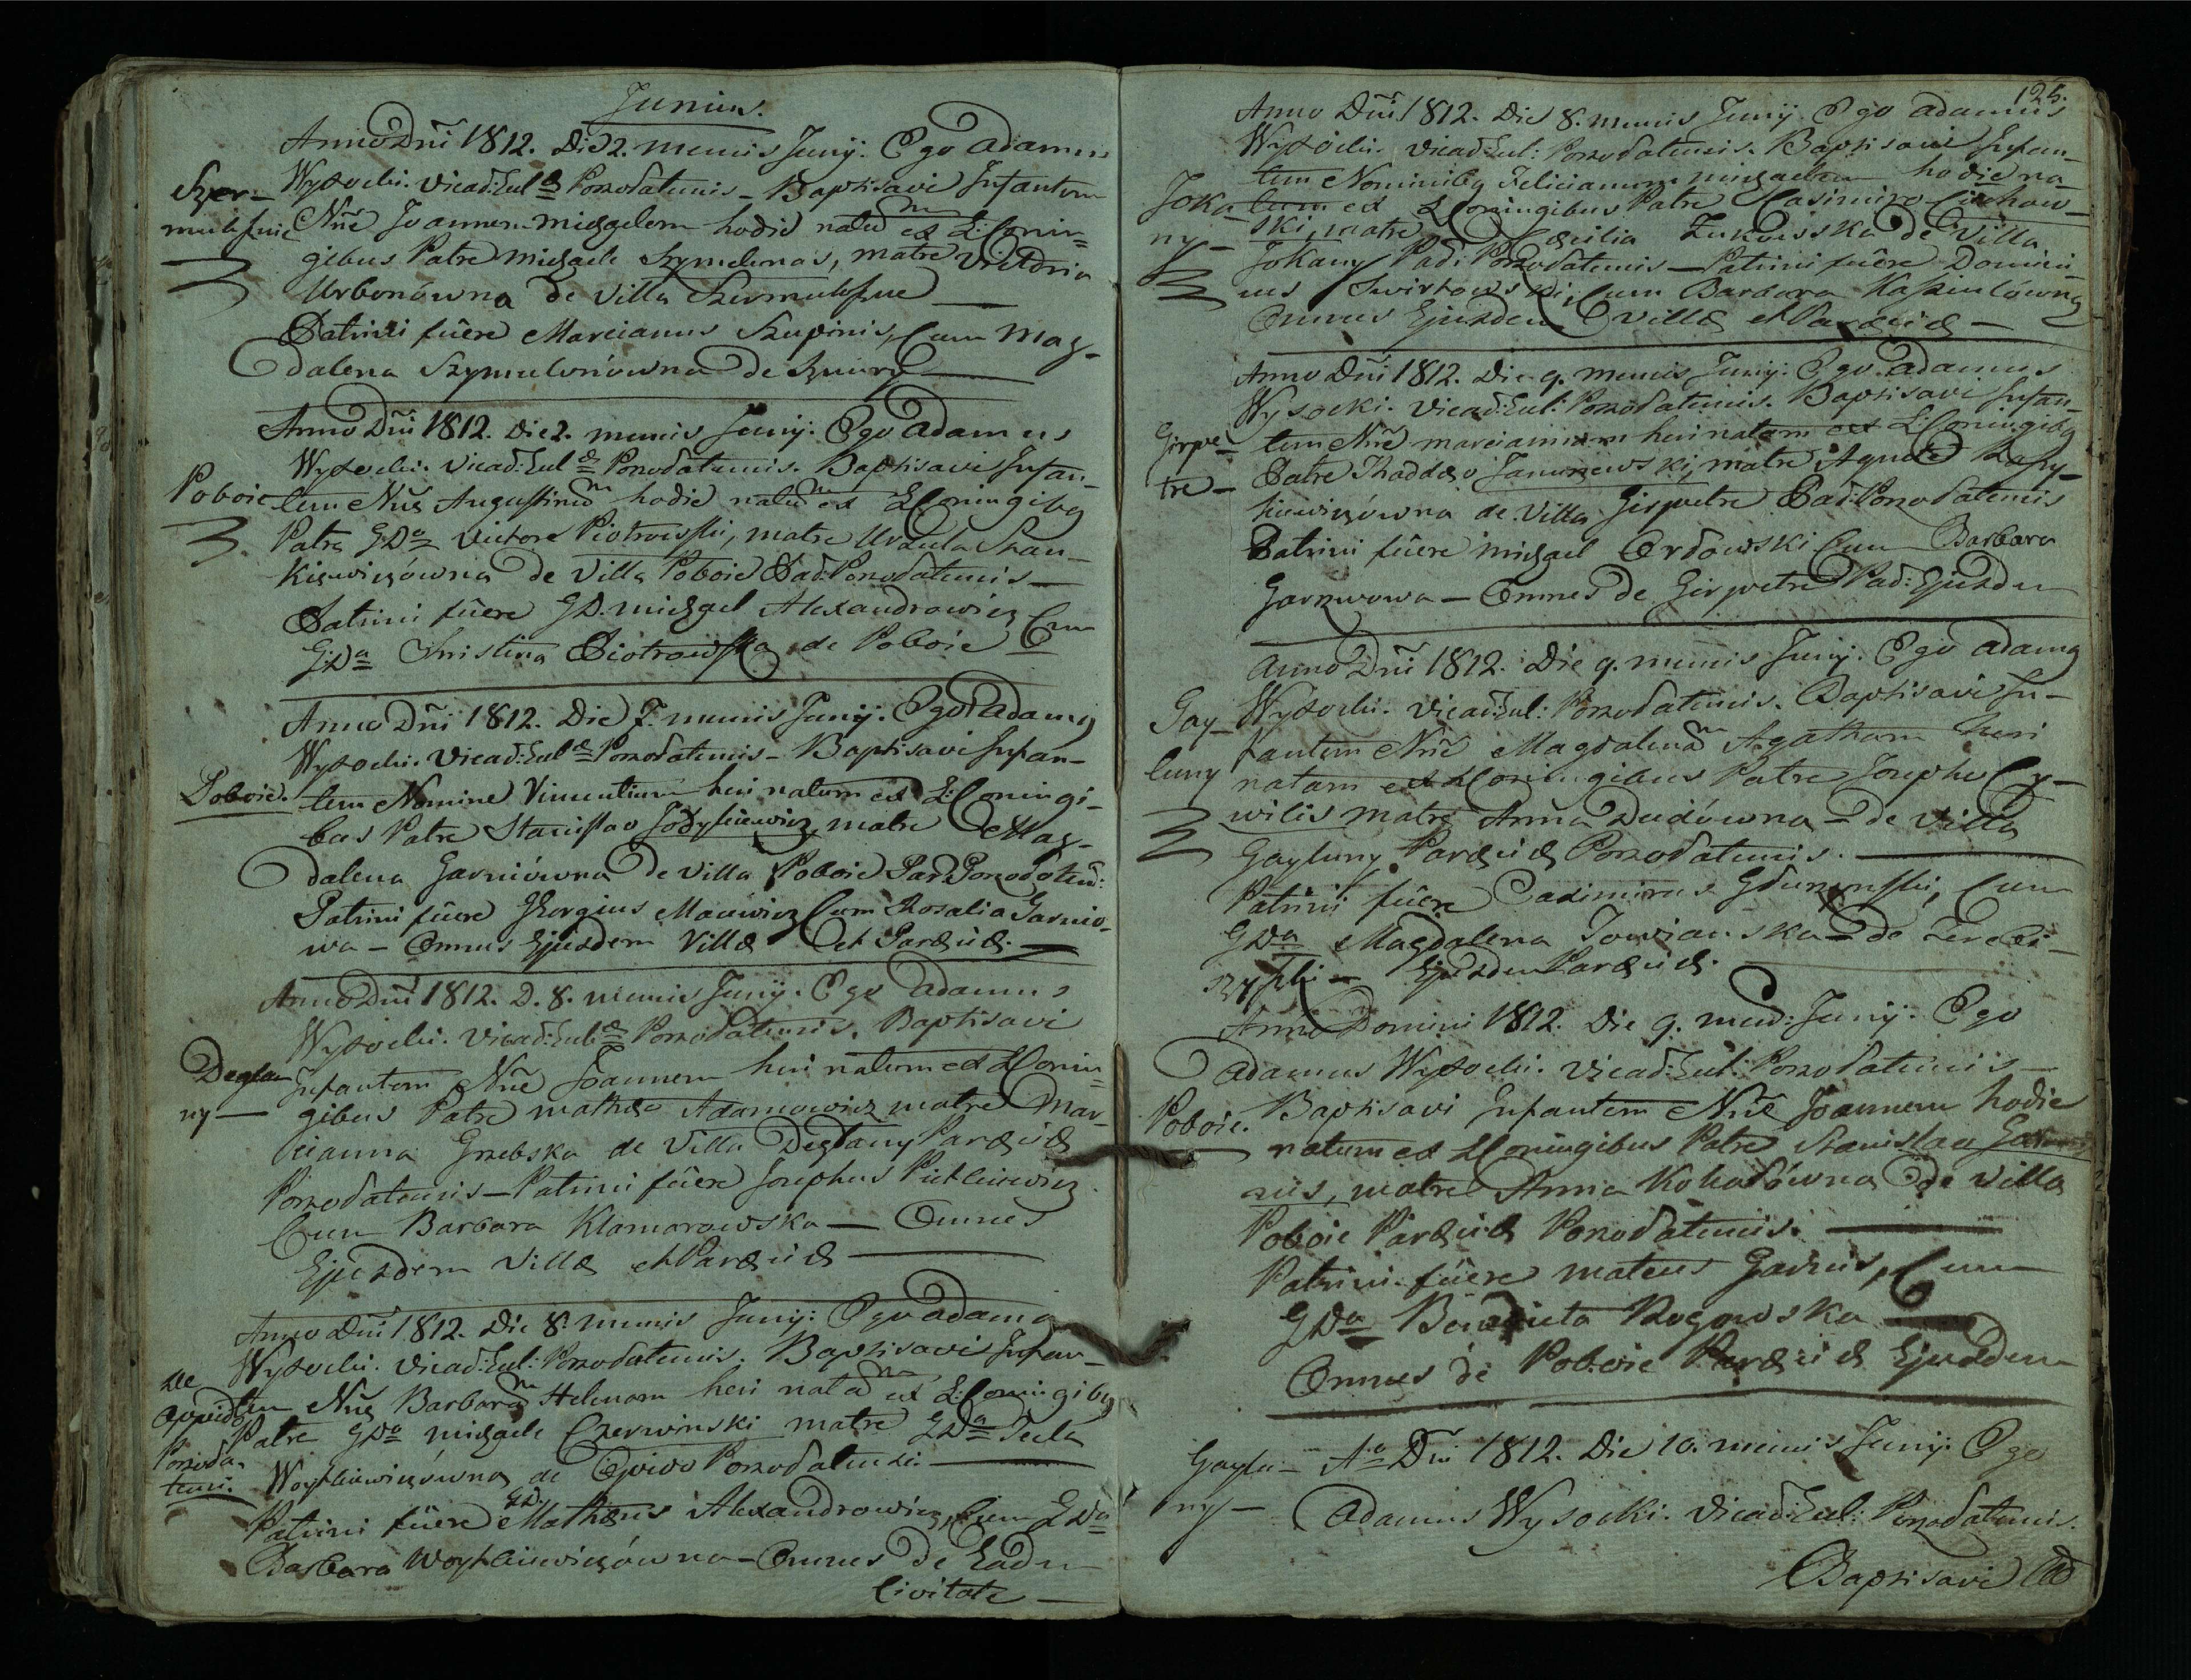 Junius.
Anno Dñi 1812. Die 2. mensis Junij. Ego Adamus
Szer- Wysocki. Vicad: Eul æ Pozodatensis - Baptisavi Infantem
Nñe Joannem michaelem hodie natũ ex L: Conju=
gibus Patre michaele Szymelunas, matre Victoria
Urbonówna de Villa
Patrini fuere Marcianus Szupinis, Cum Mag-
dalena Szymulunówna de
Anno Dñi 1812. Die 2. mensis Junij. Ego Adamus
Wysocki. Vicad: Eul æ Pozodatensis. Baptisavi Infan-
Poboie tem Nñe Augustinũ hodie natũ ex L Conjugibus
Patre GDo Victore Piotrowski, matre Ursula Stan-
kiewiczówna de Villa Poboie Pad: Pozodatensis -
Patrini fuere GD. michael Alexandrowicz Cum
GDa Christina Piotrowska de Poboie
Anno Dñi 1812. Die 7. mensis Junij. Ego Adamus
Wysocki. Vicad: Eul æ Pozodatensis - Baptisavi Infan-
Poboie. tem Nomine Vincentium heri natum ex L: Conjugi-
bus Patre Stanislao matre Mag-
dalena Garniówna de Villa Poboie Par: Pozodaten:
Patrini fuere Georgius Maciewicz Cum Rosalia Garnio-
wa - Omnes Ejusdem Villæ et Paræciæ. -
Anno Dñi 1812. D. 8. mensis Junij. Ego Adamus
Wysocki. Vicad: Eul æ Pozodatensis. Baptisavi
Deglau- Infantem Nñe Joannem heri natum ex L Conju=
ny - gibus Patre mathæo Adamowicz matre Mar-
cianna Grzebska de Villa Deglauny Paræciæ
Pozodatensis - Patrini fuere Josephus Pickiewicz
Cum Barbara Klamarowska - Omnes
Ejusdem Villæ et Paræciæ
Anno Dñi 1812. Die 8. mensis Junij: Ego Adamus
Wysocki. Vicad: Eul: Pozodatensis. Baptisavi Infan-
de tem Nñe Barbarã Helenam heri natã ex L: Conjugibus
Oppido Patre GDo michaele Czerwinski matre GDa Tecla
Pozoda- Woytkiewiczówna de Oppido Pozodatensi.
tensi.
Patrini fuere GD. Mathæus Alexandrowicz, Cum GDa
Barbara Woytkiewiczówna - Omnes de Eadem
Civitate -
125.
Anno Dñi 1812. Die 8. mensis Junij. Ego Adamus
Wysocki. Vicad: Eul: Pozodatensis. Baptisavi Infan-
tem Nominibus Felicianum michaelem hodie na-
Joka- tum ex L Conjugibus Patre Casimiro Ciechanow-
ny - ski, matre Cæcilia Zukowska de Villa
Jokany Pad: Pozodatensis - Patrini fuere Domini-
cus Swirtowski, Cum Barbara
Omnes Ejusdem Villæ et Paræciæ -
Anno Dñi 1812. Die 9. mensis Junij. Ego Adamus
Wysocki. Vicad: Eul: Pozodatensis. Baptisavi Infan-
Girpe- tem Nñe marciannam heri natam ex L Conjugibus
tre - Patre Thaddæo Januszewski, matre Agnete
de Villa Girpetre Pad: Pozodatensis
Patrini fuere michael Ordowski Cum Barbara
- Omnes de Girpetre Pad: Ejusdem
Anno Dñi 1812. Die 9. mensis Junij. Ego Adamus
Gay- Wysocki. Vicad: Eul: Pozodatensis. Baptisavi In-
luny fantem Nñe Magdalenã Agatham heri
natam ex L Conjugibus Patre Josepho Cy-
wilis matre Anna Dudówna - de Villa
Gayluny Paræciæ Pozodatensis.
Patrini fuere Casimirus Cum
GDa Magdalena Jowianska - de
Ejusdem Paræciæ.
Anno Domini 1812. Die 9. mens: Junij. Ego
Adamus Wysocki. Vicad: Eul: Pozodatensis -
Poboie. Baptisavi Infantem Nñe Joannem hodie
natum ex L Conjugibus Patre Stanislao
matre Anna Kohodówna de Villa
Poboie Paræciæ Pozodatensis.
Patrini fuere mateus Garnis, Cum
GDa Benedicta Rogowska
Omnes de Poboie Paræciæ Ejusdem
Gaylu- Ao Dni 1812. Die 10. mensis Junij. Ego
ny - Adamus Wysocki. Vicad: Eul: Pozodatensis.
Baptisavi